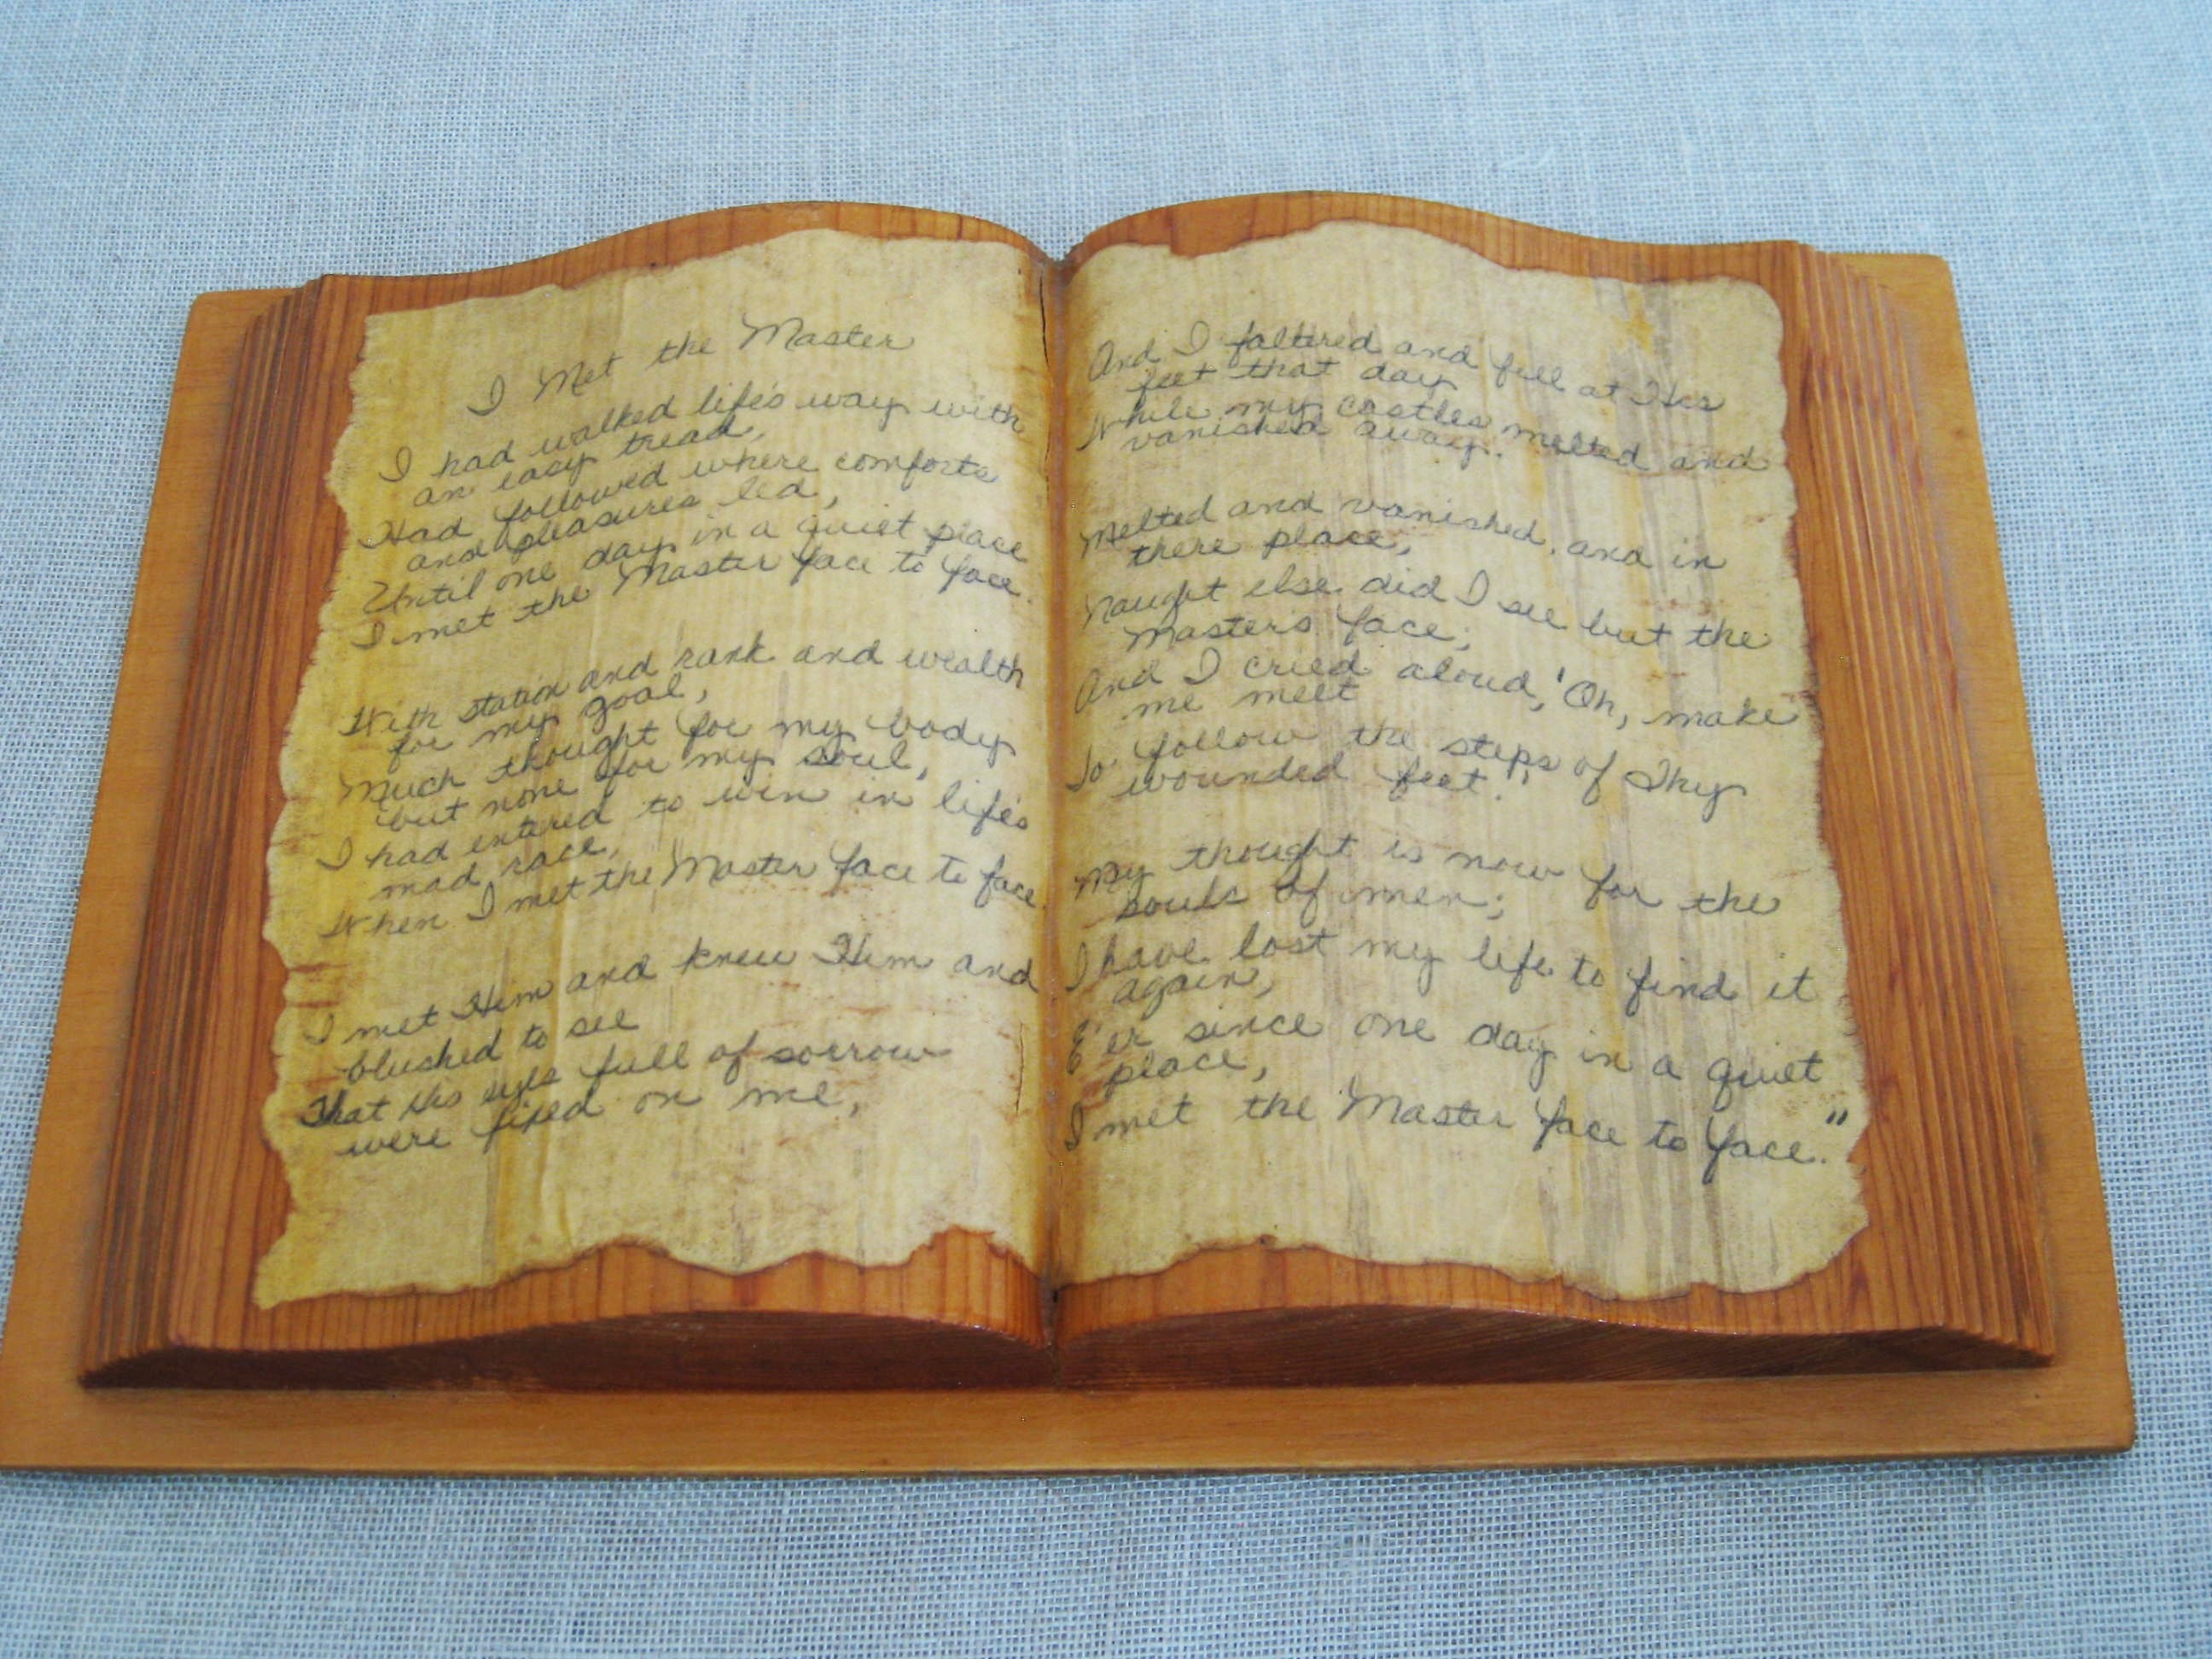 I Met the Master
I had walked life's way with
an easy tread,
Had followed where comforts
and pleasures led,
Until one day in a quiet place
I met the Master face to face.
With station and rank and wealth
for my goal,
Much thought for my body
but none for my soul,
I had entered to win in life's
mad race,
When I met the Master face to face.
I met Him and knew Him and
blushed to see
That His eyes full of sorrow
were fixed on me,
And I faltered and fell at His
feet that day
While my castles melted and
vanished away.
Melted and vanished, and in
there place,
Naught else did I see but the
Master's face;
And I cried aloud, 'Oh, make
me meet
To follow the steps of Thy
wounded feet.'
My thought is now for the
souls of men;
I have lost my life to find it
again,
E'er since one day in a quiet
place,
I met the Master face to face."